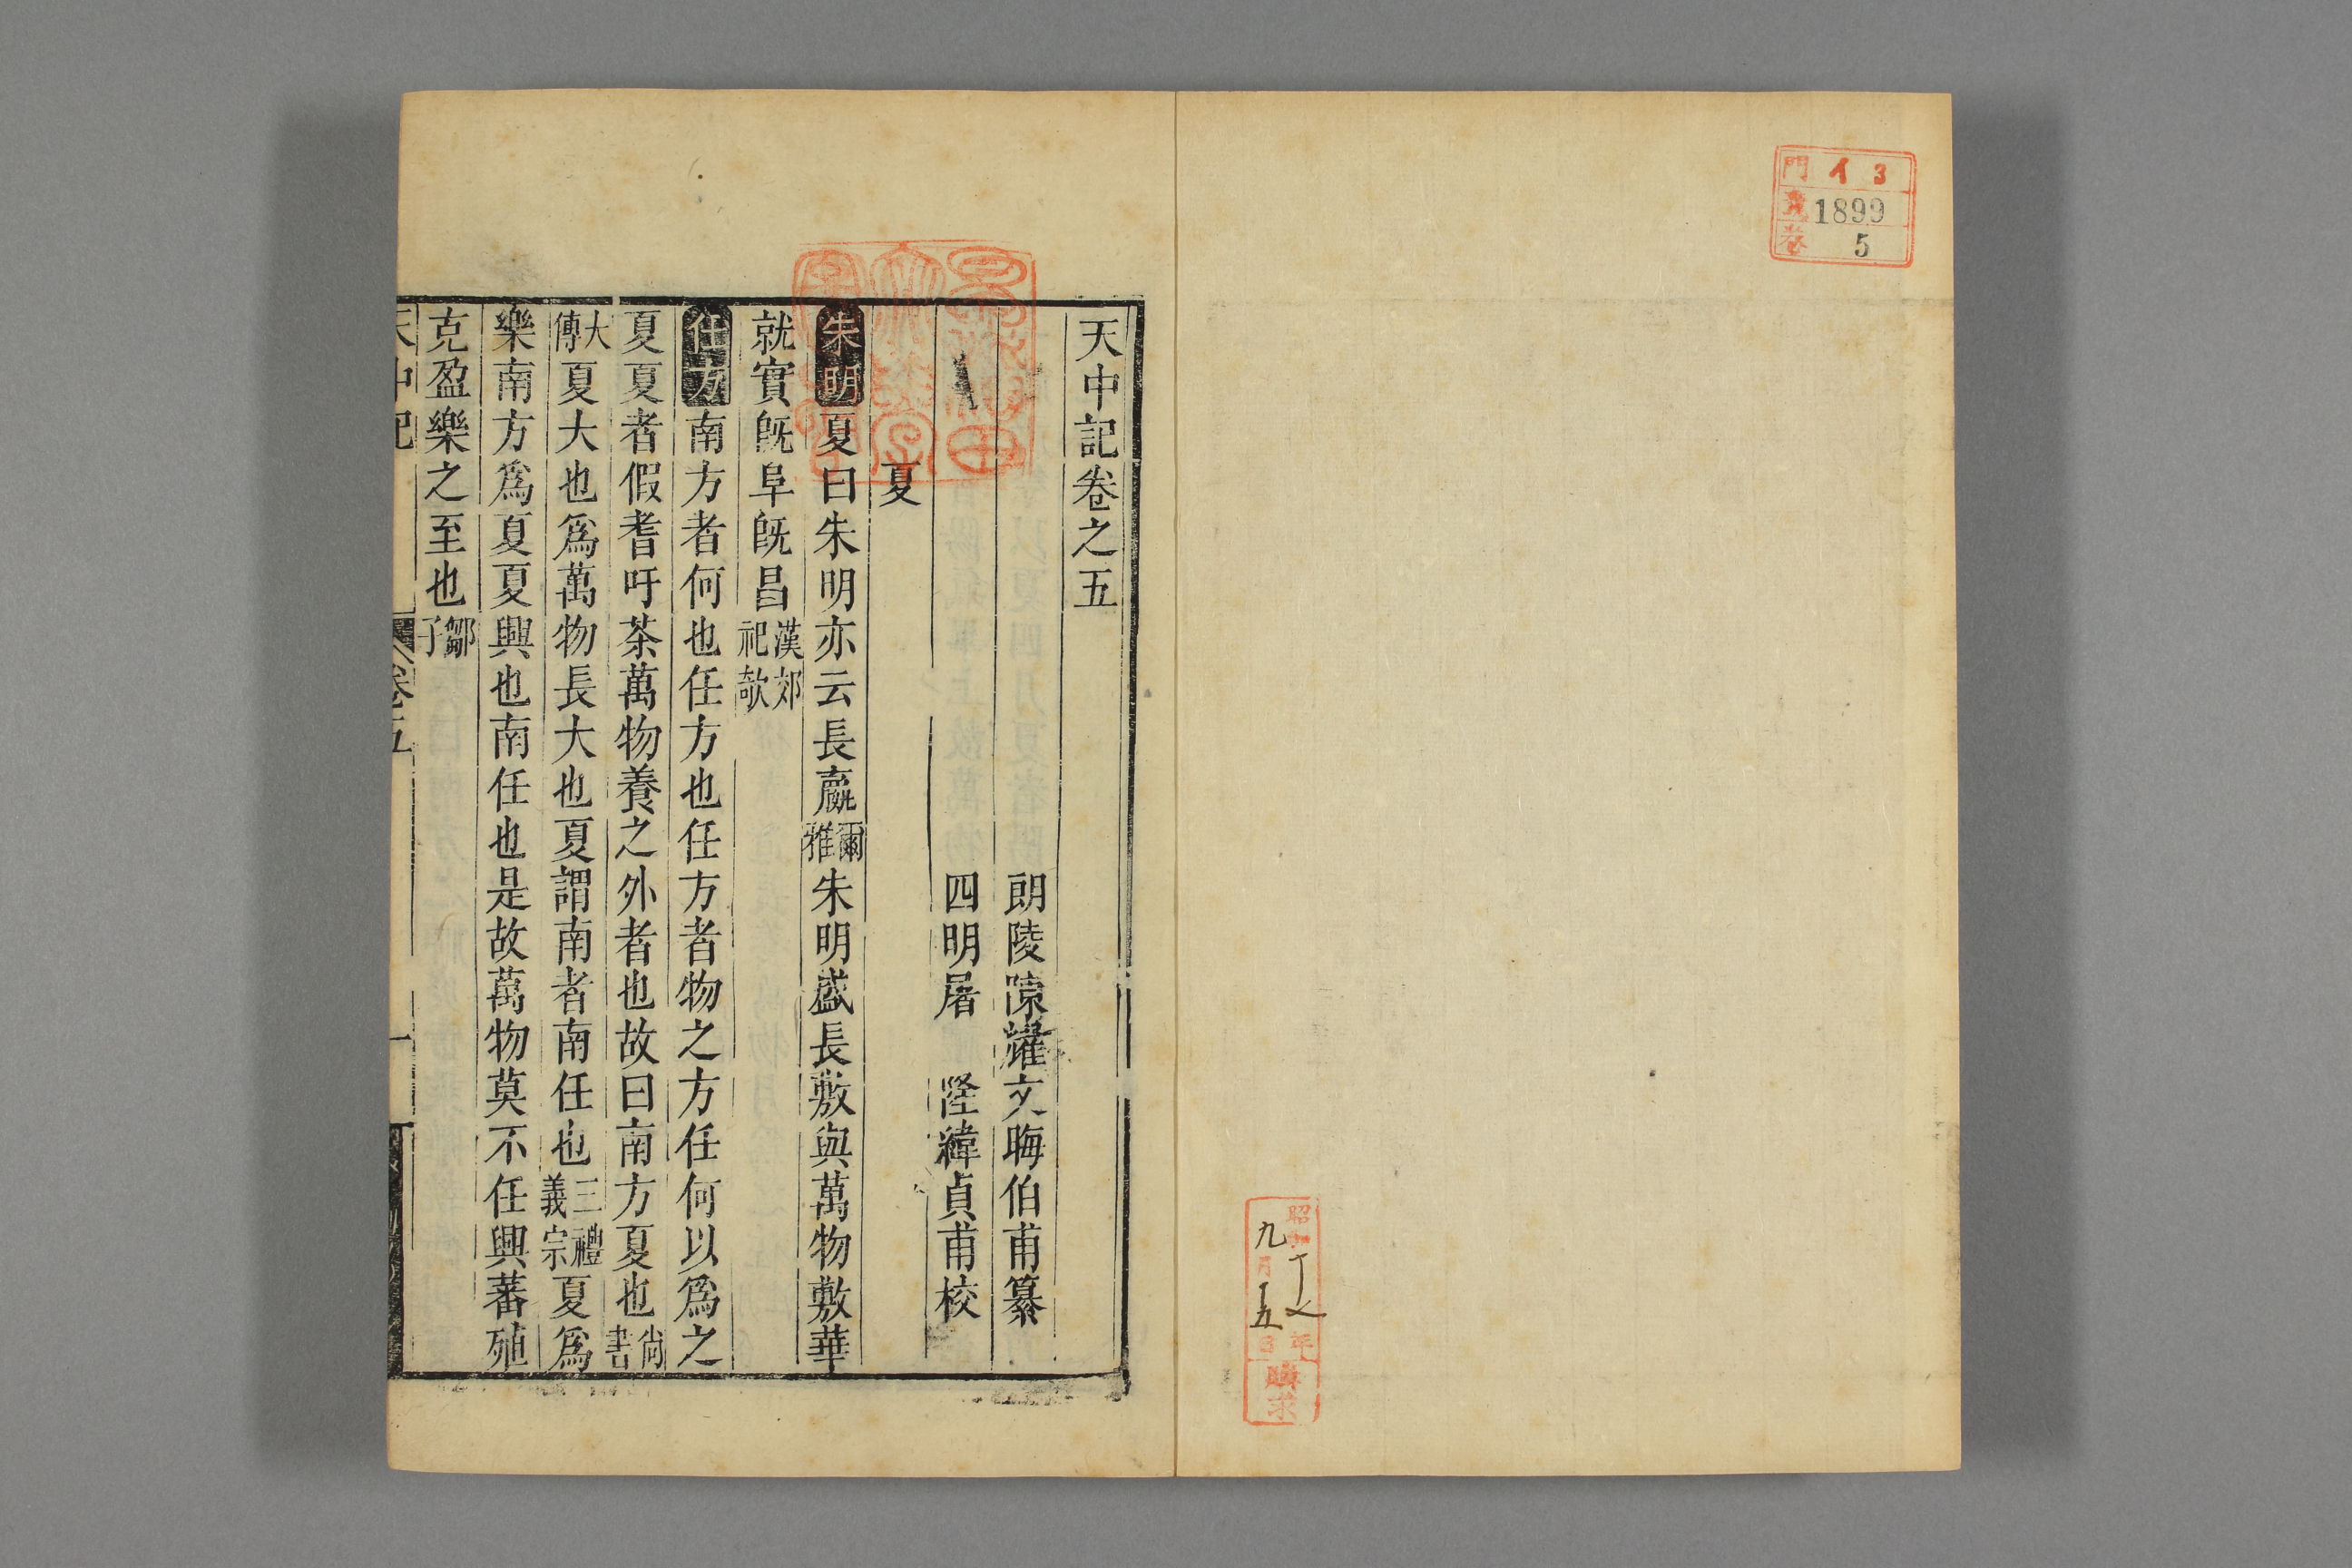 門 イ 3
號 1899
卷 5
昭和十七年
九月五日
購求
天中記卷之五
朗陵陳耀文晦伯甫纂
四明屠　隆緯貞甫校
夏
朱明夏曰朱明亦云長嬴爾雅朱明盛長敷與萬物敷華
就實旣阜旣昌漢郊祀歌
任方南方者何也任方也任方者物之方任何以爲之
夏夏者假者吁荼萬物養之外者也故曰南方夏也尙書
大傳夏大也爲萬物長大也夏謂南者南任也三禮義宗夏爲
樂南方爲夏夏興也南任也是故萬物莫不任興蕃殖
克盈樂之至也鄒子
天中記　卷五　一